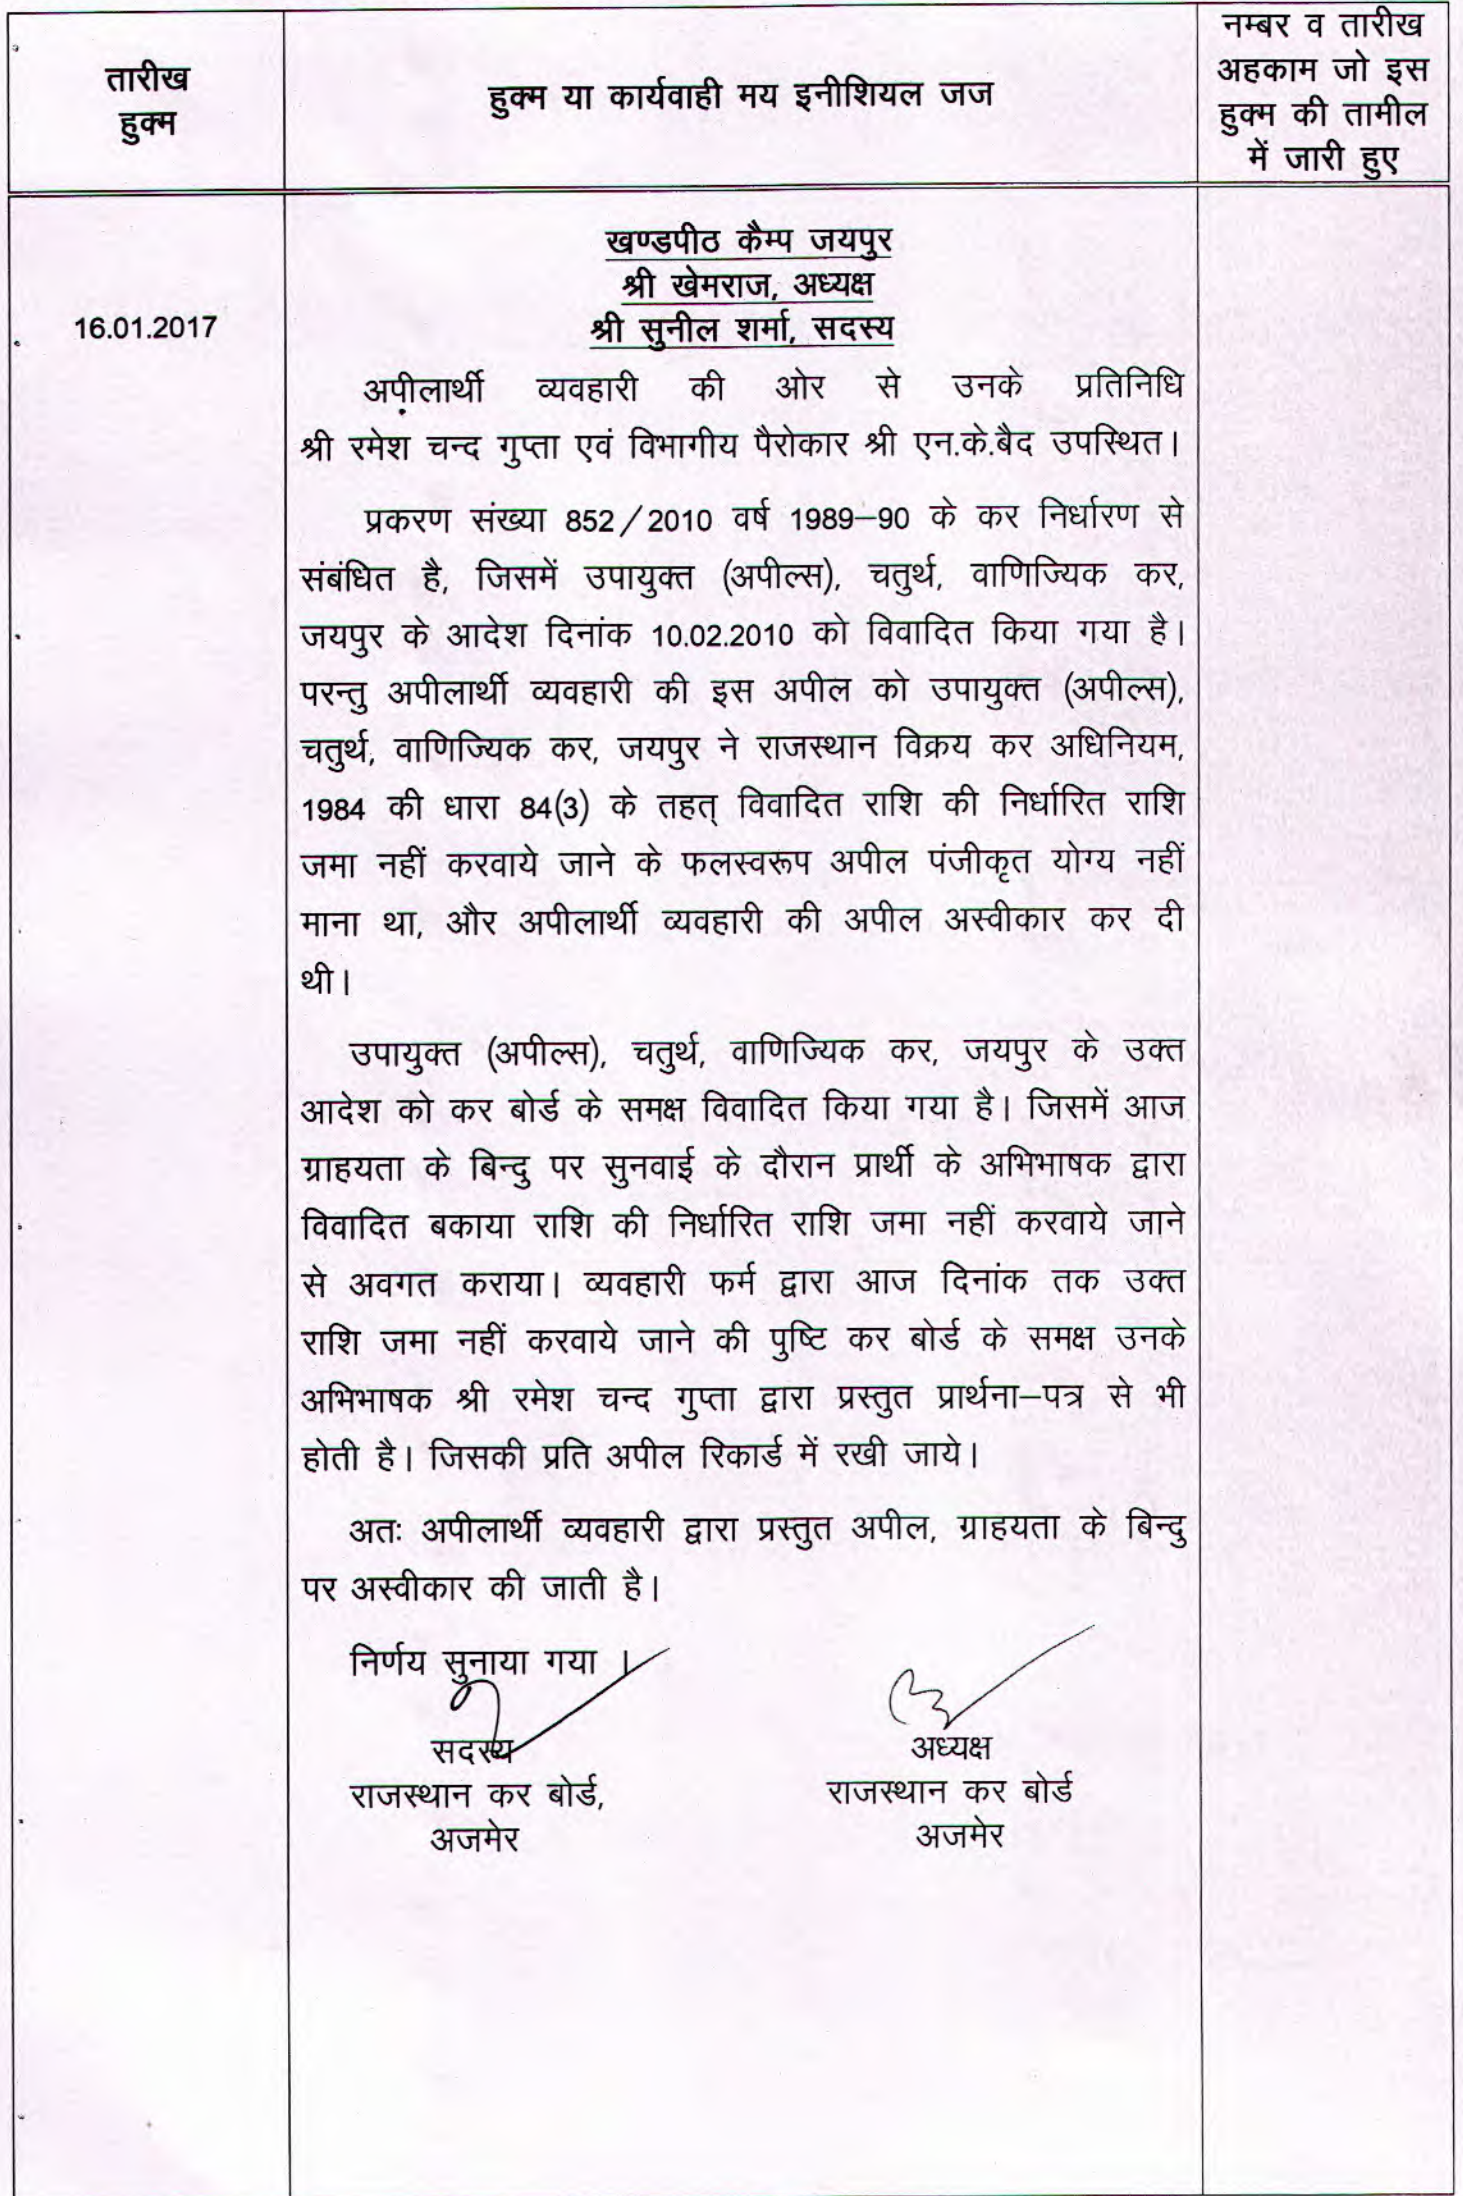 तारीख
हुक्म
हुक्म या कार्यवाही मय इनीशियल जज
नम्बर व तारीख
अहकाम जो इस
हुक्म की तामील
में जारी हुए
खण्डपीठ कैम्प जयपुर
श्री खेमराज, अध्यक्ष
16.01.2017
श्री सुनील शर्मा, सदस्य
अपीलार्थी व्यवहारी की ओर से उनके प्रतिनिधि
श्री रमेश चन्द गुप्ता एवं विभागीय पैरोकार श्री एन.के.बैद उपस्थित।
प्रकरण संख्या 852/2010 वर्ष 1989–90 के कर निर्धारण से
संबंधित है, जिसमें उपायुक्त (अपील्स), चतुर्थ, वाणिज्यिक कर,
जयपुर के आदेश दिनांक 10.02.2010 को विवादित किया गया है।
परन्तु अपीलार्थी व्यवहारी की इस अपील को उपायुक्त (अपील्स),
चतुर्थ, वाणिज्यिक कर, जयपुर ने राजस्थान विक्रय कर अधिनियम,
1984 की धारा 84(3) के तहत् विवादित राशि की निर्धारित राशि
जमा नहीं करवाये जाने के फलस्वरूप अपील पंजीकृत योग्य नहीं
माना था, और अपीलार्थी व्यवहारी की अपील अस्वीकार कर दी
थी।
उपायुक्त (अपील्स), चतुर्थ, वाणिज्यिक कर, जयपुर के उक्त
आदेश को कर बोर्ड के समक्ष विवादित किया गया है। जिसमें आज
ग्राहयता के बिन्दु पर सुनवाई के दौरान प्रार्थी के अभिभाषक द्वारा
विवादित बकाया राशि की निर्धारित राशि जमा नहीं करवाये जाने
से अवगत कराया। व्यवहारी फर्म द्वारा आज दिनांक तक उक्त
राशि जमा नहीं करवाये जाने की पुष्टि कर बोर्ड के समक्ष उनके
अभिभाषक श्री रमेश चन्द गुप्ता द्वारा प्रस्तुत प्रार्थना–पत्र से भी
होती है। जिसकी प्रति अपील रिकार्ड में रखी जाये।
अतः अपीलार्थी व्यवहारी द्वारा प्रस्तुत अपील, ग्राहयता के बिन्दु
पर अस्वीकार की जाती है।
निर्णय सुनाया गया ।
सदस्य
राजस्थान कर बोर्ड,
अजमेर
अध्यक्ष
राजस्थान कर बोर्ड
अजमेर